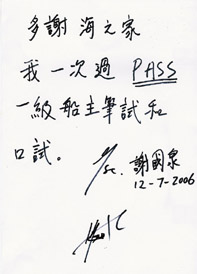 多謝 海之家
我 一次過 PASS
一級船主筆試和
口試。
謝國泉
12-7-2006